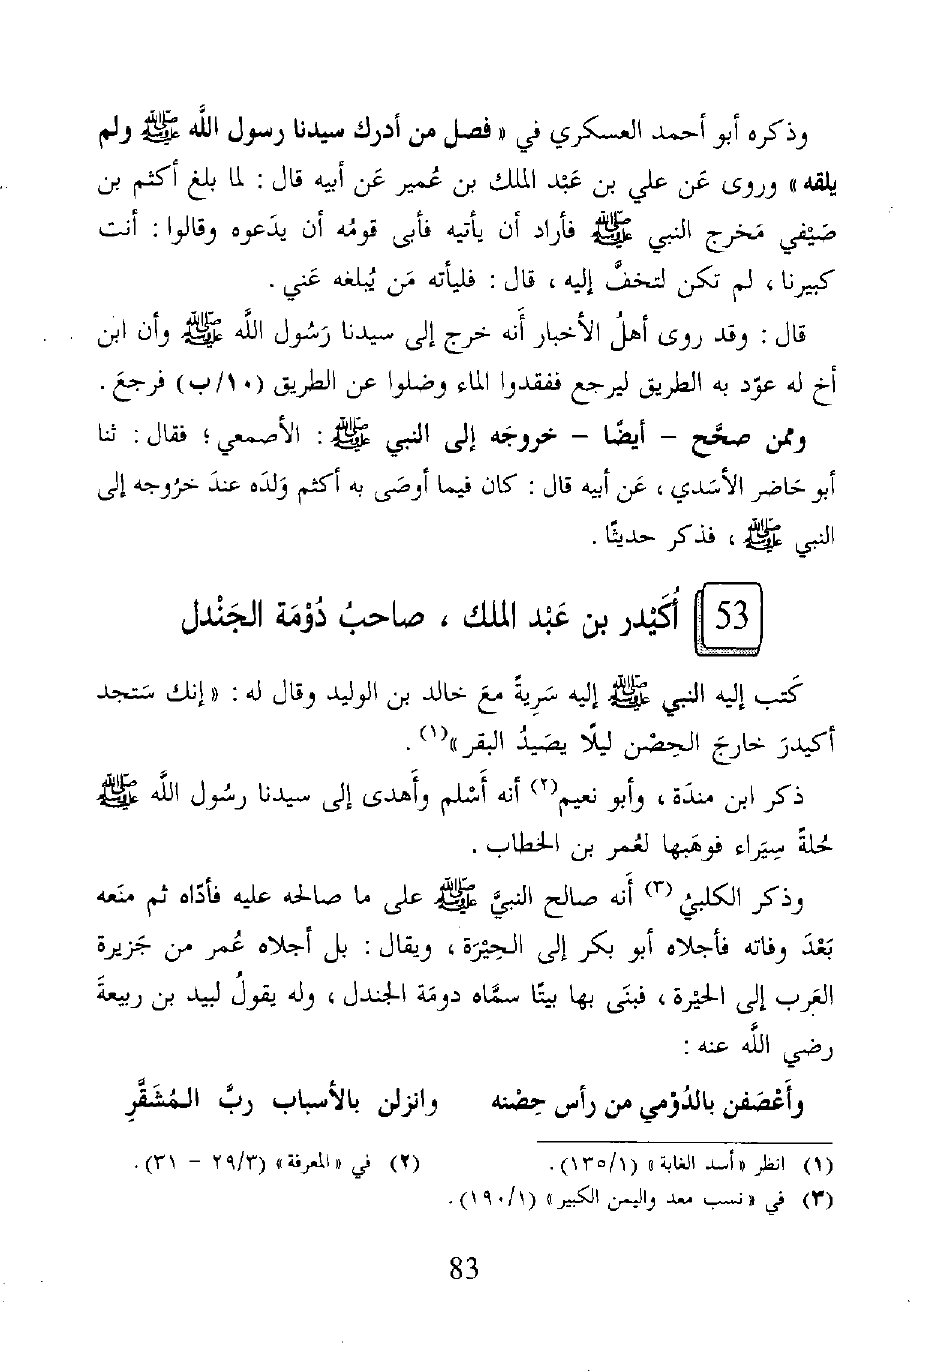 وذكره أبو أحمد العسكري في « فصل من أدرك سيدنا رسول اللَّه ﷺ ولم
يلقه » وروى عَن علي بن عَبْد الملك بن عُمير عَن أبيه قال : لما بلغ أكثم بن
صَيْفي مَخرج النبي ﷺ فأراد أن يأتيه فأبى قومُه أن يدَعوه وقالوا : أنت
كبيرنا ، لم تكن لتخفَّ إليه ، قال : فليأته مَن يُبلغه عَني .
قال : وقد روى أهلُ الأخبار أَنه خرج إلى سيدنا رَسُول اللَّه ﷺ وأن ابن
أخ له عوّد به الطريق ليرجع ففقدوا الماء وضلوا عن الطريق (١٠/ب) فرجعَ .
وممن صحَّح – أيضًا – خروجَه إلى النبي ﷺ : الأصمعي ؛ فقال : ثنا
أبو حَاضر الأسَدي ، عَن أبيه قال : كان فيما أوصَى به أكثم وَلدَه عندَ خرُوجه إلى
النبي ﷺ ، فذكر حديثًا .
53 أُكَيْدر بن عَبْد الملك ، صاحبُ دُوْمَة الجَنْدل
كَتب إليه النبي ﷺ إليه سَرِيةً معَ خالد بن الوليد وقال له : « إنك سَتجد
أكيدرَ خارجَ الحِصْن ليلًا يصَيدُ البقر »(١) .
ذكر ابن مندَة ، وأبو نعيم(٢) أنه أَسْلم وأَهدى إلى سيدنا رسُول اللَّه ﷺ
حُلةً سِيَراء فوهَبها لعُمر بن الخطاب .
وذكر الكلبيُ (٣) أَنه صالح النبيَّ ﷺ على ما صالحه عليه فأدّاه ثم منَعه
بَعْدَ وفاته فأجلاه أبو بكر إلى الحِيْرَة ، ويقال : بل أجلاه عُمر من جَزيرة
العَرب إلى الحيْرة ، فبنَى بها بيتًا سمَّاه دومَة الجندل ، وله يقولُ لبيد بن ربيعةَ
رضي اللَّه عنه :
وأَعْصَفن بالدُوْمي من رأس حِصْنه وانزلن بالأسباب ربَّ المُشقَّرِ
(١) انظر « أسد الغابة » (١٣٥/١) . (٢) في « المعرفة » (٢٩/٣ – ٣١) .
(٣) في « نسب معد واليمن الكبير » (١٩٠/١) .
83